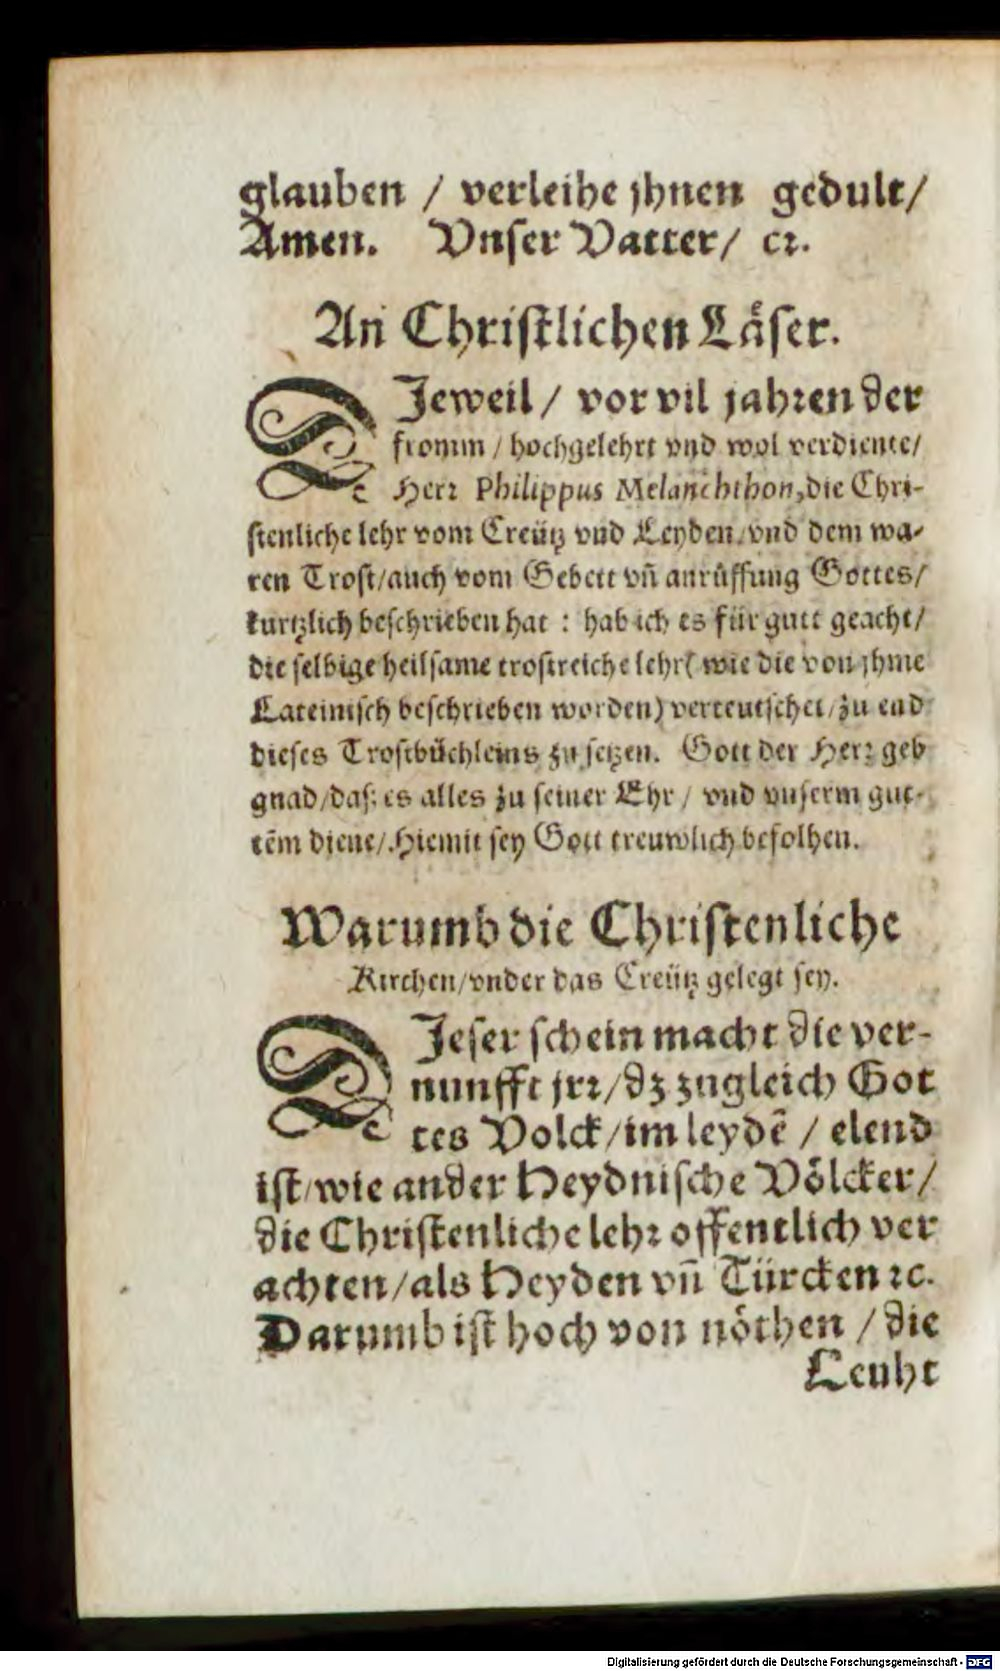 glauben / verleihe jhnen gedult/
Amen. Vnser Vatter/ ꝛc.
An Christlichen Läser.
DJeweil / vor vil jahren der
fromm / hochgelehrt vnd wol verdiente/
Herꝛ Philippus Melanchthon, die Chri-
stenliche lehr vom Creütz vnd Leyden/vnd dem wa-
ren Trost/auch vom Gebett vñ anrüffung Gottes/
kurtzlich beschrieben hat : hab ich es für gutt geacht/
die selbige heilsame trostreiche lehr( wie die von jhme
Lateinisch beschrieben worden) verteutschet/zu end
dieses Trostbüchleins zu setzen. Gott der Herꝛ geb
gnad/daß es alles zu seiner Ehr / vnd vnserm gut-
tem diene/Hiemit sey Gott treuwlich befolhen.
Warumb die Christenliche
Kirchen/vnder das Creütz gelegt sey.
DJeser schein macht die ver-
nunfft jrꝛ/dz zugleich Got
tes Volck/im leydẽ / elend
ist/wie ander Heydnische Völcker/
die Christenliche lehꝛ offentlich ver
achten/als Heyden vñ Türcken ꝛc.
Darumb ist hoch von nöthen / die
Leuht
Digitalisierung gefördert durch die Deutsche Forschungsgemeinschaft - DFG